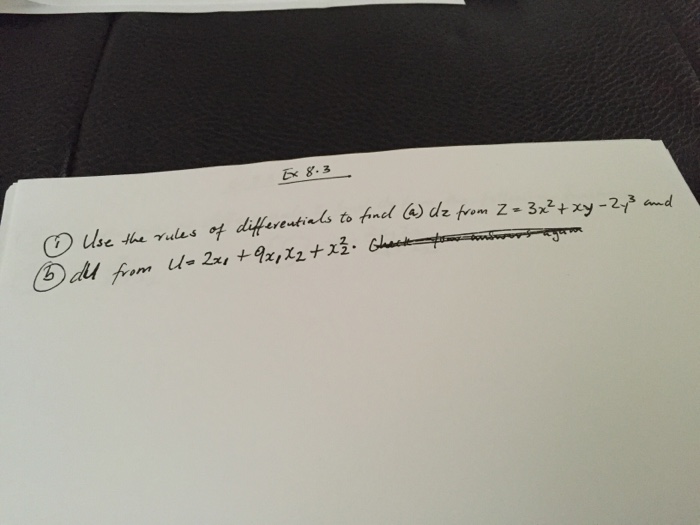 Ex 8.3
① Use the rules of differentials to find (a) dz from Z = 3x² + xy - 2y³ and
ⓑ dU from U = 2x₁ + 9x₁x₂ + x₂².